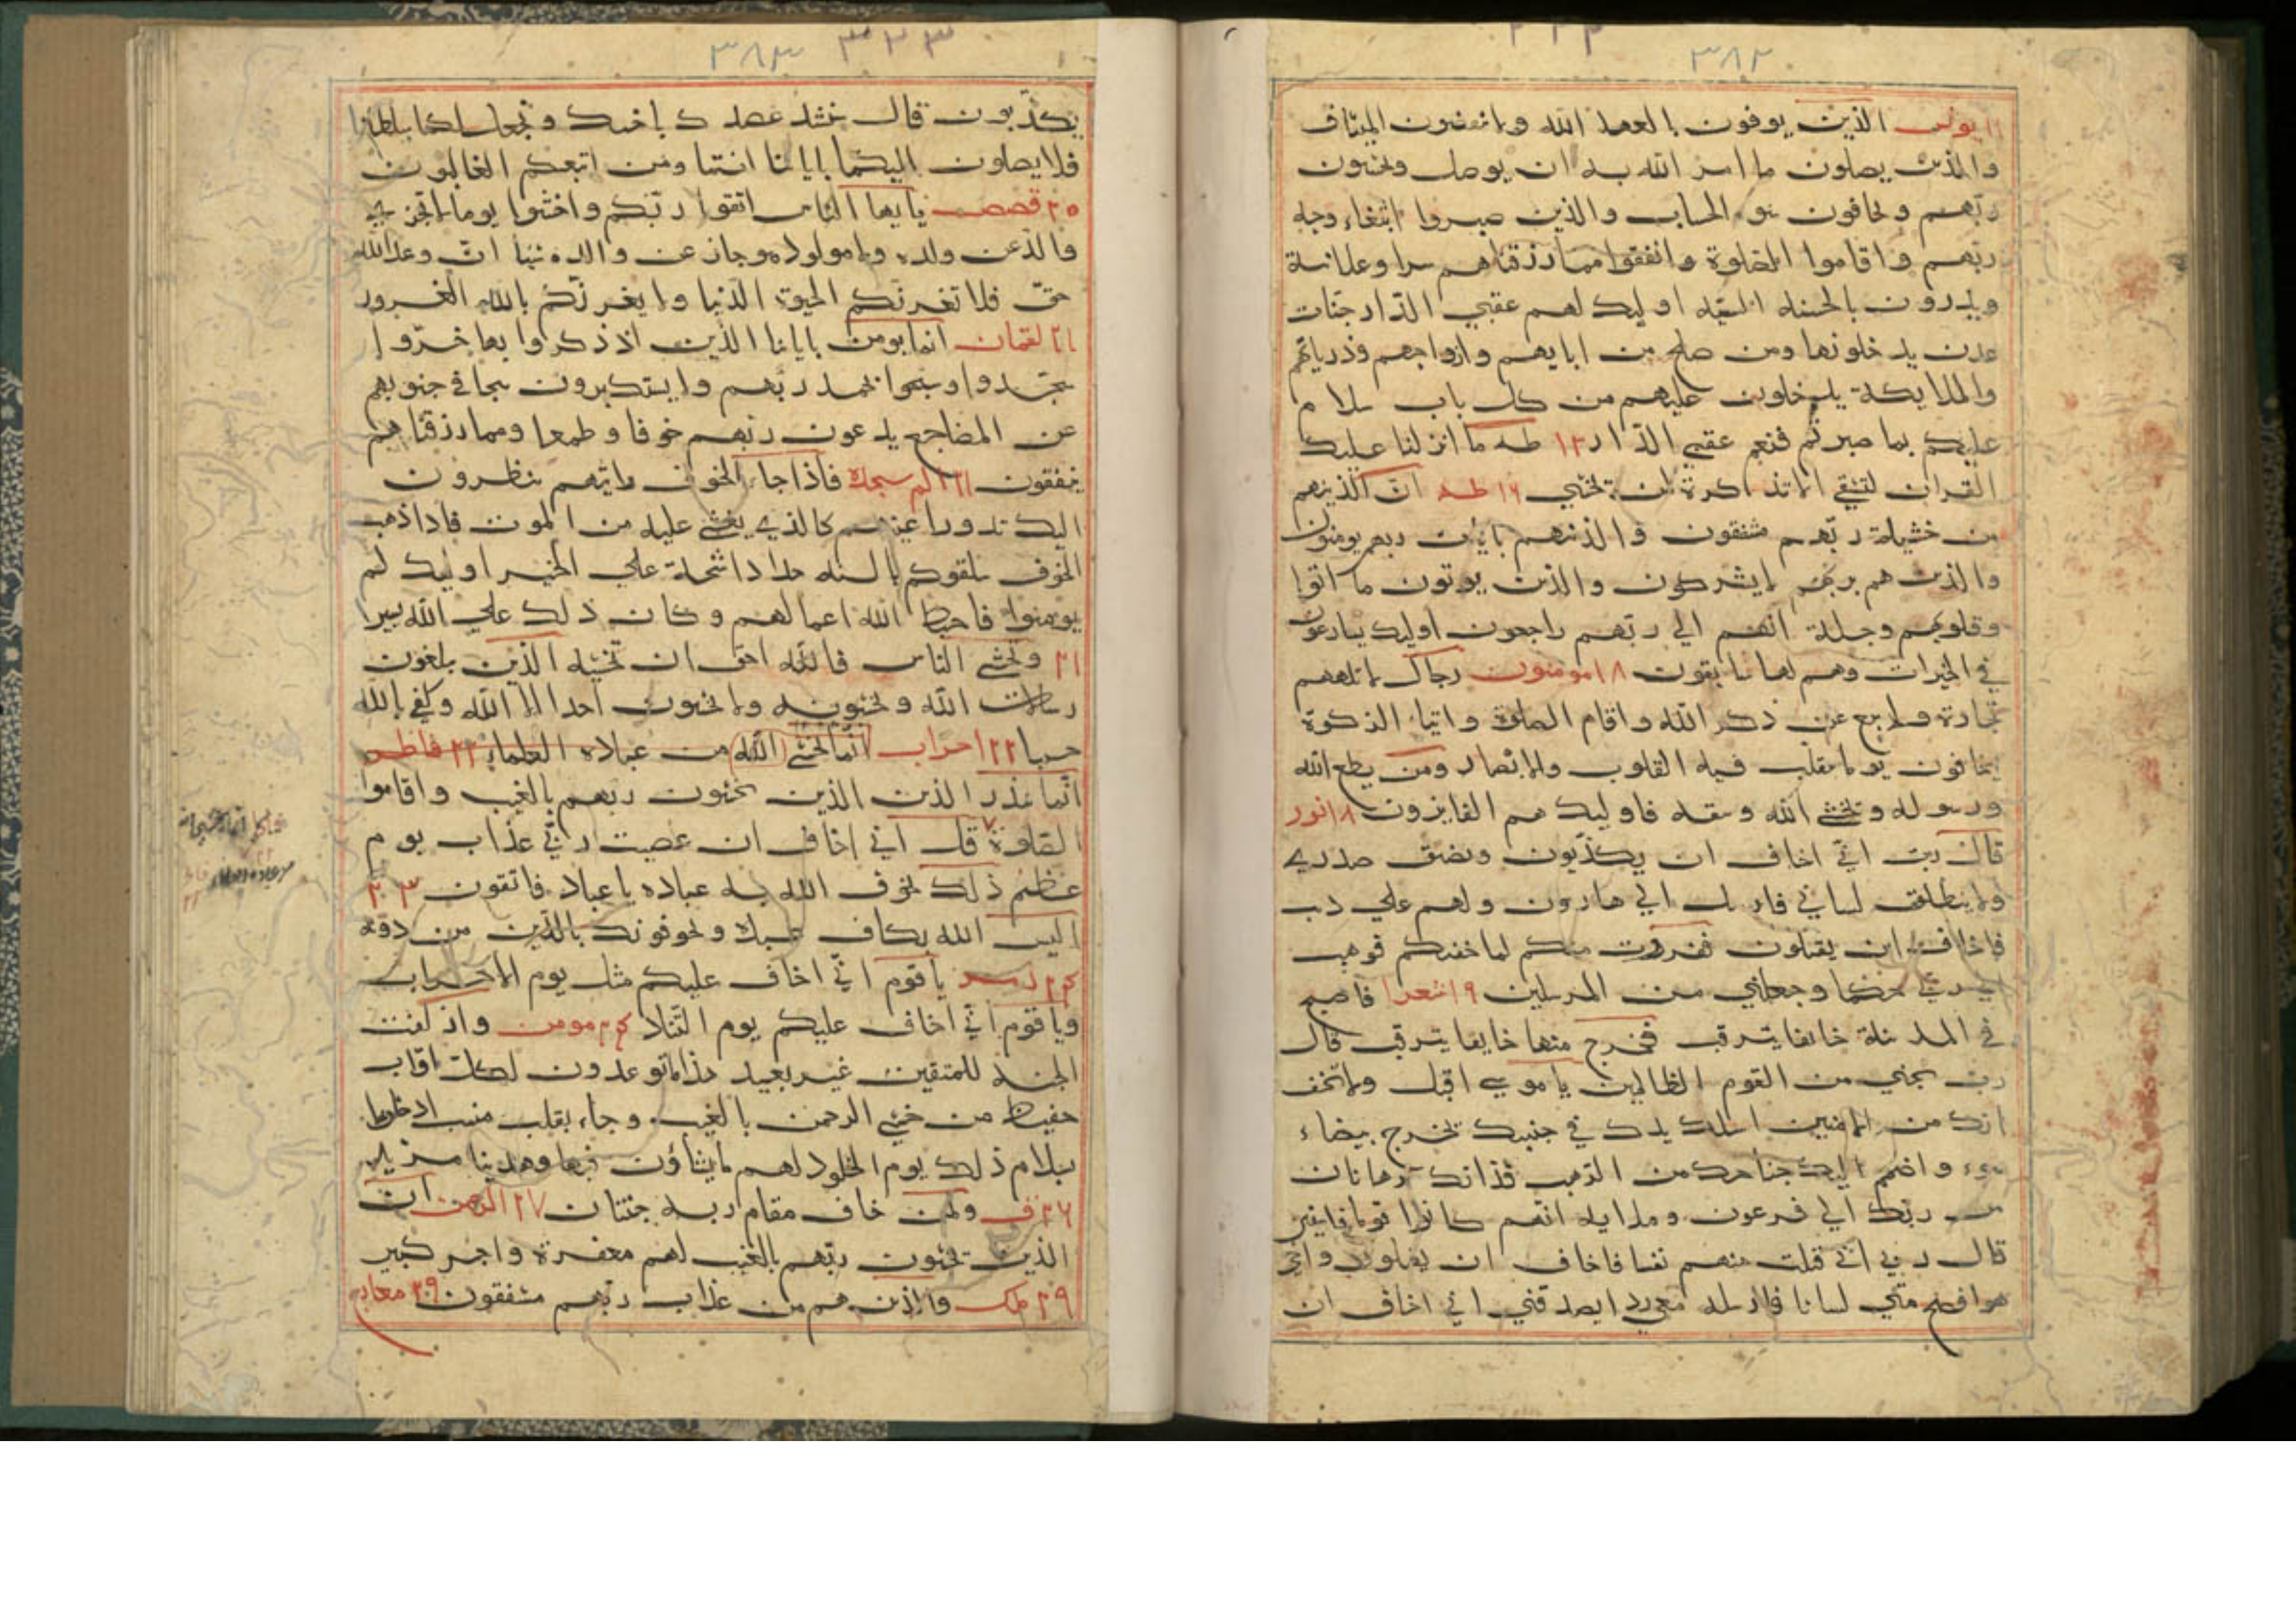 ٣٨٢
١١ يونس الذين يوفون بالعهد الله ولا ينقضون الميثاق
والذين يصلون ما امر الله به ان يوصل ويخشون
ربهم ويخافون سو الحساب والذين صبروا ابتغاء وجه
ربهم واقاموا الصلوة وانفقوا مما رزقناهم سرا وعلانية
ويدرون بالحسنه السيه اوليك لهم عقبي الدار جنات
عدن يدخلونها ومن صلح من ابايهم وازواجهم وذرياتهم
والملايكة يدخلون عليهم من كل باب سلام
عليكم بما صبرتم فنعم عقبي الدار ١٣ طه ما انزلنا عليك
القران لتشقي الا تذكرة لمن يخشي ١٦ طه ان الذينهم
من خشية ربهم مشفقون والذينهم بايات ربهم يومنون
والذين هم بربهم لا يشركون والذين يوتون ما اتوا
وقلوبهم وجلة انهم الي ربهم راجعون اوليك يسارعون
في الخيرات وهم لها سابقون ١٨ مومنون رجال لا تلهيهم
تجارة ولا بيع عن ذكر الله واقام الصلوة وايتا الذكوة
يخافون يوما تقلب فيه القلوب والابصار ومن يطع الله
ورسوله ويخشي الله ويتقه فاوليك هم الفايزون ١٨ نور
قال رب اني اخاف ان يكذبون ويضيق صدري
ولا ينطلق لساني فارسل الي هارون ولهم علي ذنب
فاخاف ان يقتلون ففررت منكم لما خفتكم فوهب
لي ربي حكما وجعلني من المرسلين ١٩ شعرا فاصبح
في المدينة خايفا يترقب فخرج منها خايفا يترقب قال
رب نجني من القوم الظالمين يا موسي اقبل ولا تخف
انك من الامنين اسلك يدك في جيبك تخرج بيضاء
سوء واضمم اليك جناحك من الرهب فذانك برهانان
من ربك الي فرعون وملايه انهم كانوا قوما فاسقين
قال ربي اني قتلت منهم نفسا فاخاف ان يقتلون واخي
هو افصح مني لسانا فارسله معي ردا يصدقني اني اخاف ان
٣٨٣ ٣٣٣
يكذبون قال سنشد عضدك باخيك ونجعل لكما سلطانا
فلا يصلون اليكما باياتنا انتما ومن اتبعكم الغالبون
٢٥ قصص يا يها الناس اتقوا ربكم واخشوا يوما لا يجزي
والد عن ولده ولا مولود هو جاز عن والده شيا ان وعد الله
حق فلا تغرنكم الحيوة الدنيا ولا يغرنكم بالله الغرور
٢١ لقمان انما يومن باياتنا الذين اذ ذكروا بها خروا
سجدوا وسبحوا بحمد ربهم ولا يستكبرون تتجافي جنوبهم
عن المضاجع يدعون ربهم خوفا وطمعا ومما رزقناهم
ينفقون ٢١ الم سجدة فاذا جاء الخوف رايتهم ينظرون
اليك تدور اعينهم كالذي يغشي عليه من الموت فاذا ذهب
الخوف سلقوكم بالسنه حداد اشحة علي الخير اوليك لم
يومنوا فاحبط الله اعمالهم وكان ذلك علي الله يسيرا
٢١ وتخشي الناس فالله احق ان تخشيه الذين يبلغون
رسالات الله ويخشونه ولا يخشون احدا الا الله وكفي بالله
حسبا ٢٢ احزاب انما يخشي الله من عباده العلماء ٢٢ فاطر
انما تنذر الذين الذين يخشون ربهم بالغيب واقاموا
الصلوة قل اني اخاف ان عصيت ربي عذاب يوم
عظيم ذلك يخوف الله به عباده يا عباد فاتقون ٢٣
اليس الله بكاف عبده ويخوفونك بالذين من دونه
٢٤ زمر يا قوم اني اخاف عليكم مثل يوم الاحزاب
ويا قوم اني اخاف عليكم يوم التناد ٢٤ مومن وازلفت
الجنة للمتقين غير بعيد هذا ما توعدون لكل اواب
حفيظ من خشي الرحمن بالغيب وجاء بقلب منيب ادخلوها
بسلام ذلك يوم الخلود لهم ما يشاؤن فيها ولدينا مزيد
٢٦ ق ولمن خاف مقام ربه جنتان ٢٧ الرحمن ان
الذين يخشون ربهم بالغيب لهم مغفرة واجر كبير
٢٩ ملك والذين هم من عذاب ربهم مشفقون ٢٩ معارج